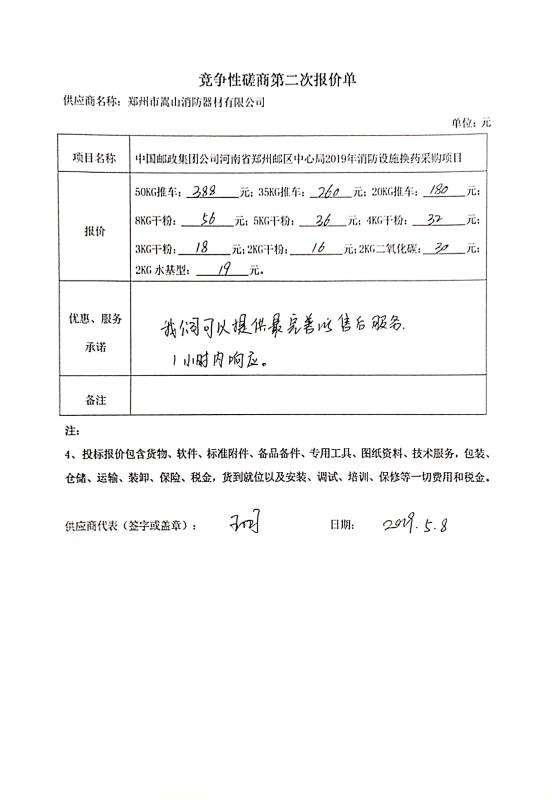 竞争性磋商第二次报价单
供应商名称：郑州市嵩山消防器材有限公司
单位：元
项目名称 中国邮政集团公司河南省郑州邮区中心局2019年消防设施换药采购项目
报价
50KG推车：388元；35KG推车：260元；20KG推车：180元；
8KG干粉：56元；5KG干粉：36元；4KG干粉：32元；
3KG干粉：18元；2KG干粉：16元；2KG二氧化碳：30元；
2KG水基型：19元。
优惠、服务
承诺
我公司可以提供最完善的售后服务.
1小时内响应。
备注
注：
4、投标报价包含货物、软件、标准附件、备品备件、专用工具、图纸资料、技术服务，包装、
仓储、运输、装卸、保险、税金，货到就位以及安装、调试、培训、保修等一切费用和税金。
供应商代表（签字或盖章）： 日期： 2019.5.8